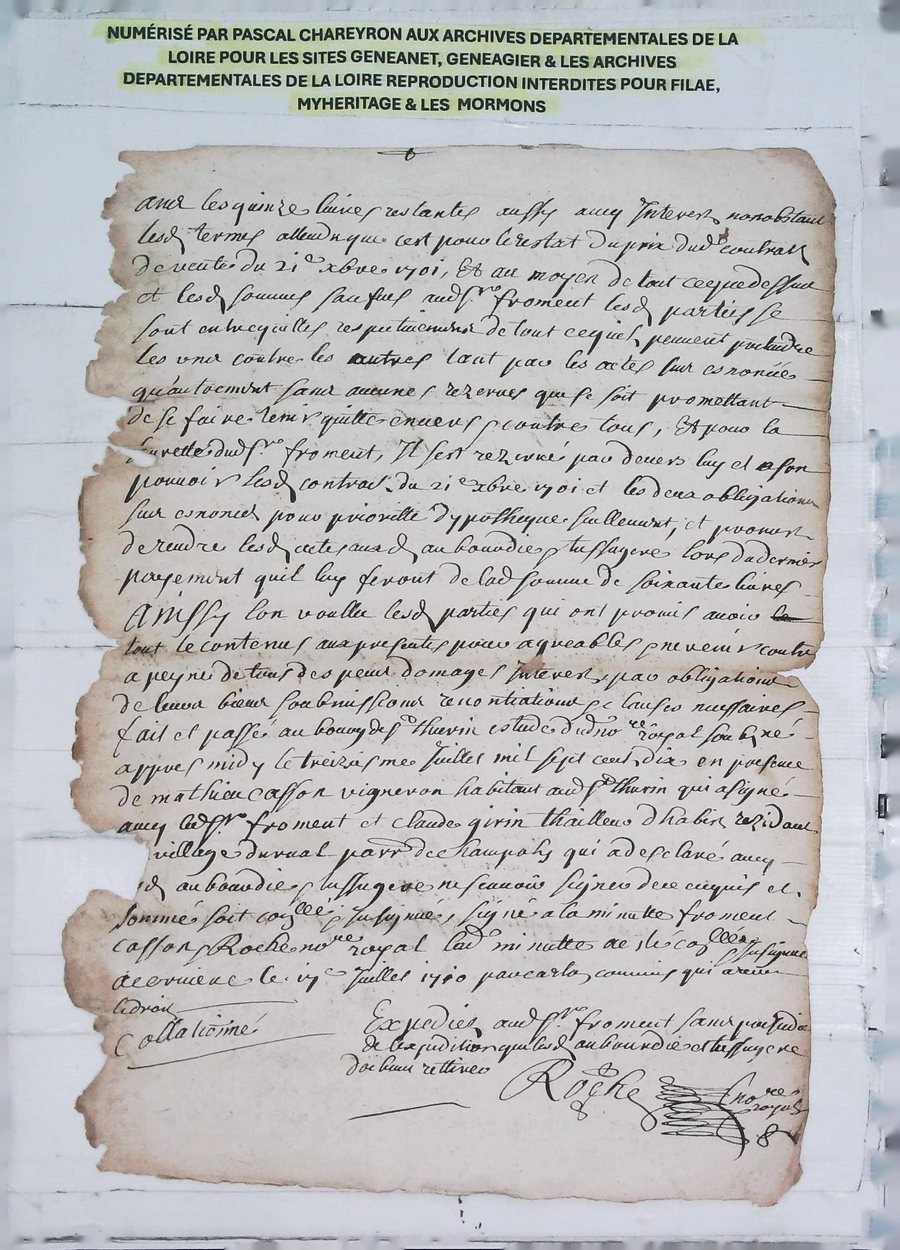 NUMÉRISÉ PAR PASCAL CHAREYRON AUX ARCHIVES DEPARTEMENTALES DE LA
LOIRE POUR LES SITES GENEANET, GENEAGIER & LES ARCHIVES
DEPARTEMENTALES DE LA LOIRE REPRODUCTION INTERDITES POUR FILAE,
MYHERITAGE & LES MORMONS
avec les quinze livres restantes aussy avec Interest nonobstant
lesd termes attendu que cest pour le restat du prix dud contrat
de vente du 21e xbre 1701, Et au moyen de tout ce que dessus
et lesd sommes saufves aud Sr froment lesd parties se
sont entrequittes respectivement de tout ce quels peuvent pretendre
les unes contre les autres tant par les actes sus enoncés
quautrement sans aucunes reserves que ce soit promettant
de se faire tenir quitte envers & contre tous, Et pour la
surette dud Sr froment, Il sest rezervé par devers luy et a son
pouvoir lesd contrat du 21e xbre 1701 et les deux obligations
sus enoncés pour priorité dypotheque seullement, et promet
de rendre lesd actes auxd aubourdies & tussugere lors du dernier
payement quil luy feront de lad somme de soixante livres
Ainssy lon voullu lesd parties qui ont promis avoir
tout le contenus aux presentes pour agreables & ne venir contre
a peyne de tous despens domages Interest, par obligations
de leurs biens soubmissions renontiations & clauses necessaires
fait et passé au bourg de St thurin estude dud nore royal soubzné
appres midy le treiziesme Juillet mil sept cent dix en presence
de mathieu casson vigneron habitant aud St thurin qui a signé
avec led Sr froment et claude girin thailleur dhabis rezidant
village durval parr de champoly qui a desclaré avec
d aubourdies & tussugere ne scavoir signer de ce enquis et
sommé soit conllé & Insignué, signé a la minutte froment
casson & Roche nore royal lad minutte a esté conllée & Insignuée
a cerviere le 17e Juillet 1710 par carton commis qui a receu
le droit
Collationné
Expedies aud Sr froment sans prejudice
de lexpedition que lesd aubourdies et tussugere
doibvent rettirer
Roche
nore
royal